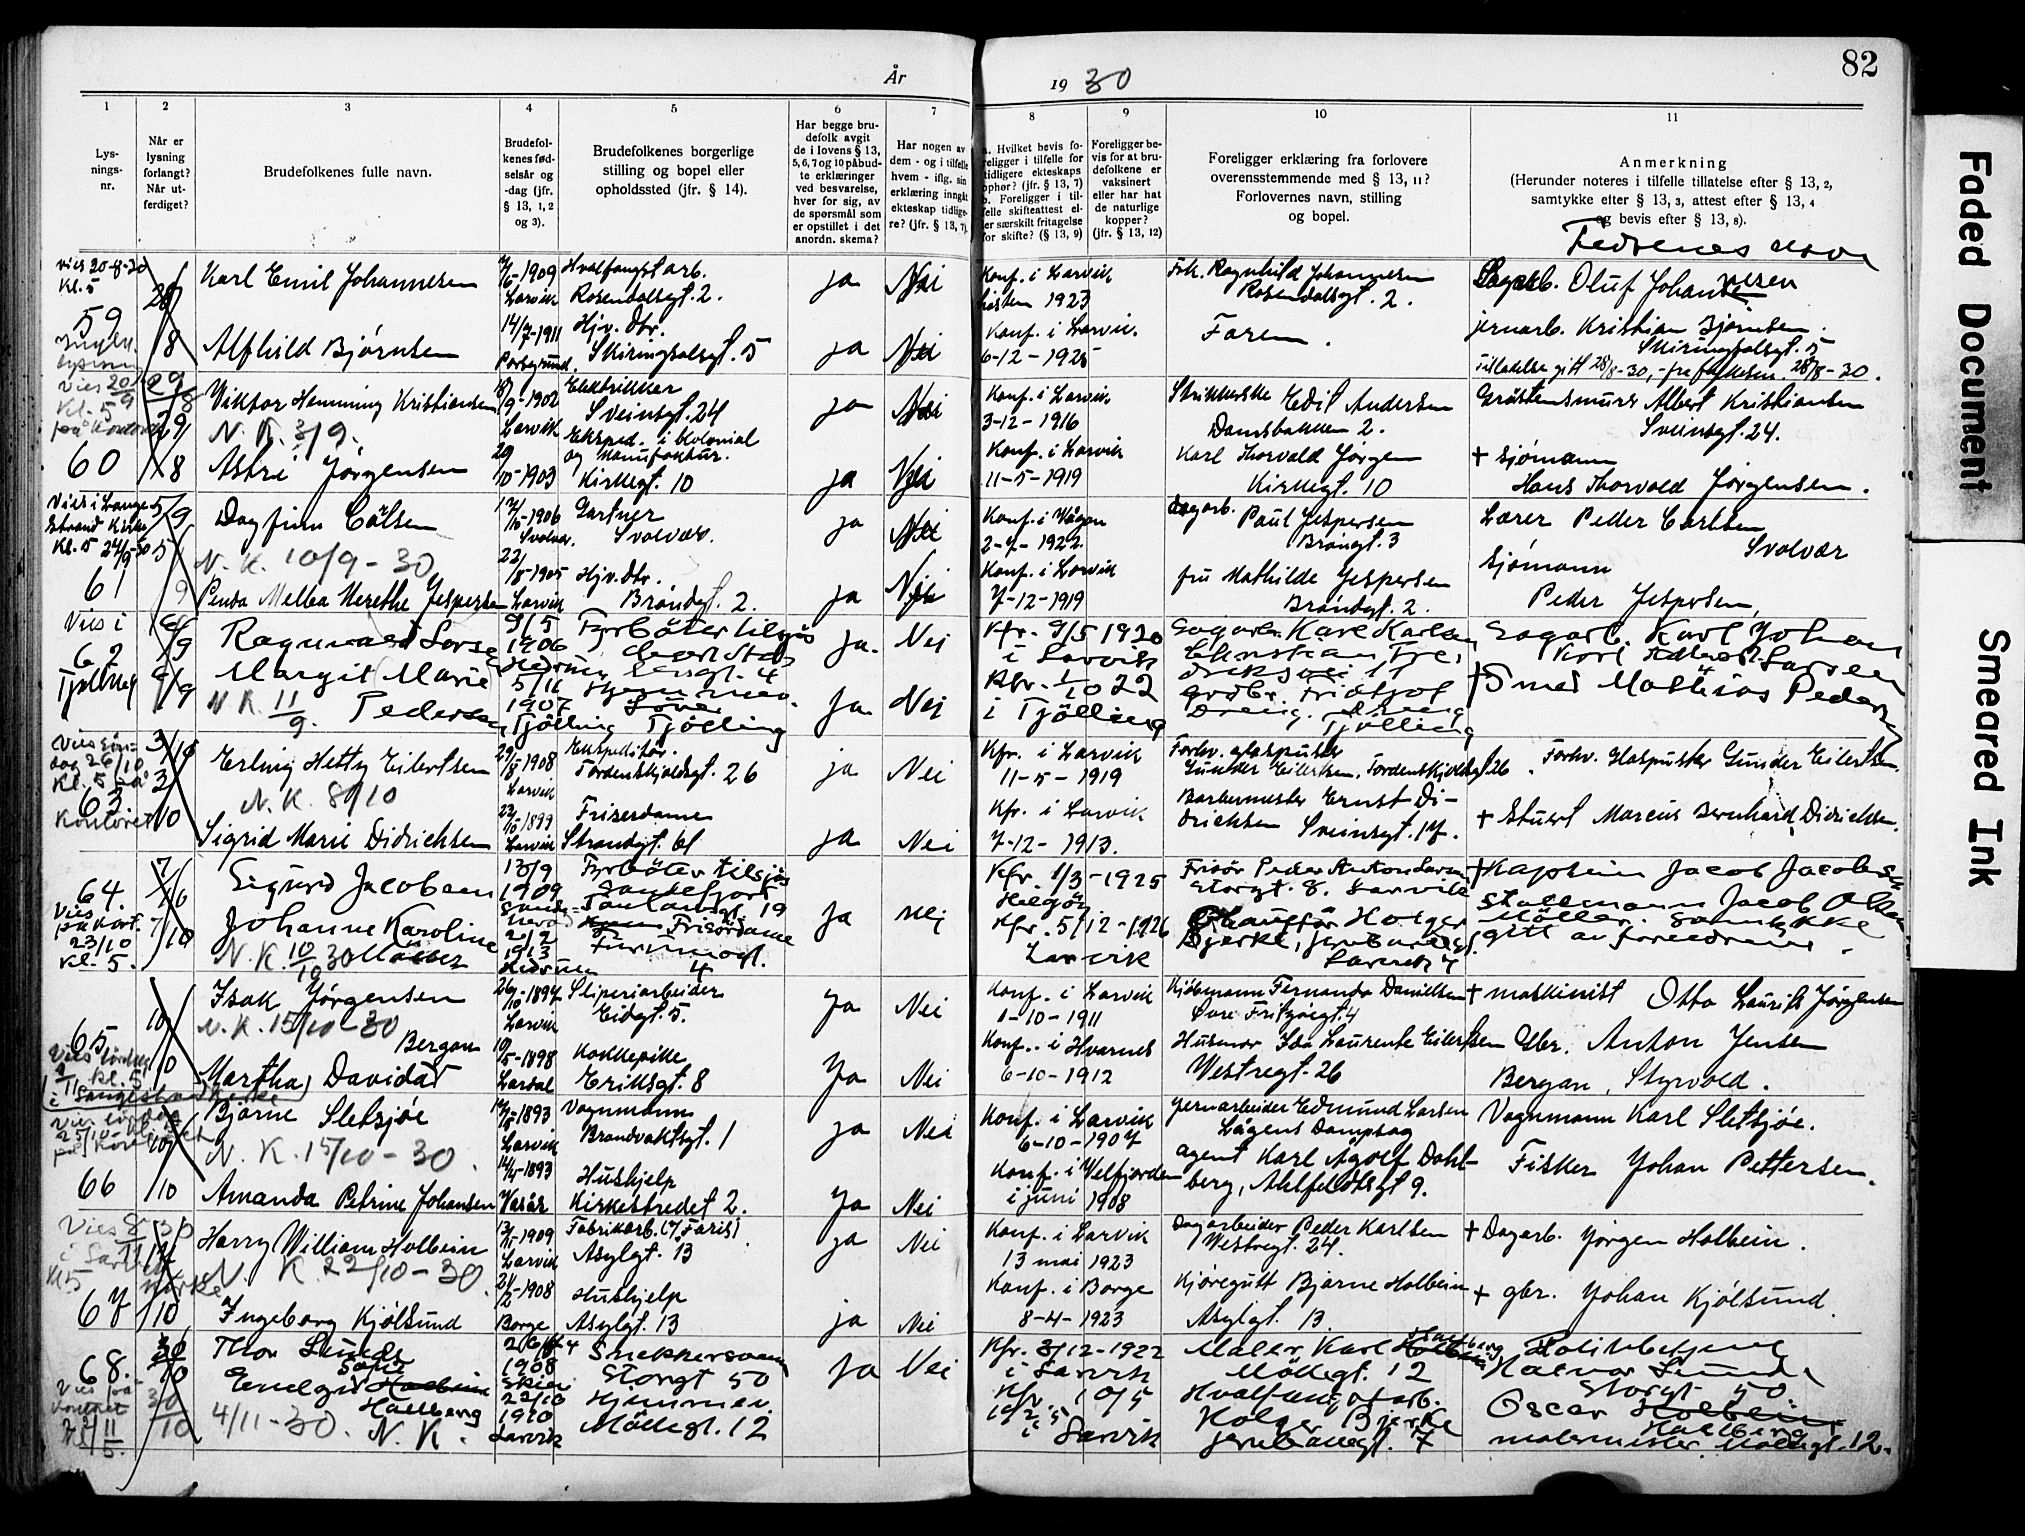 82
År
1930
1
2
3
4
5
6
7
8
9
10
11
Lys-
nings-
nr.
Når er
lysning
forlangt?
Når ut-
ferdiget?
Brudefolkenes fulle navn.
Brudefol-
kenes fød-
selsår og
-dag (jfr.
§ 13, 1, 2
og 3).
Brudefolkenes borgerlige
stilling og bopel eller
opholdssted (jfr. § 14).
Har begge bru-
defolk avgit
de i lovens § 13,
5, 6, 7 og 10 påbud-
te erklæringer
ved besvarelse,
hver for sig, av
de spørsmål som
er opstillet i det
anordn. skema?
Har nogen av
dem - og i tilfelle
hvem - iflg. sin
erklæring inngått
ekteskap tidlige-
re? (jfr. § 13, 7).
a. Hvilket bevis fo-
religger i tilfelle for
tidligere ekteskaps
ophør? (jfr. § 13, 7)
b. Foreligger i til-
felle skifteattest el-
ler særskilt fritagelse
for skifte? (§ 13, 9)
Foreligger be-
vis for at bru-
defolkene er
vaksinert
eller har hat
de naturlige
kopper?
(jfr. § 13, 12)
Foreligger erklæring fra forlovere
overensstemmende med § 13, 11?
Forlovernes navn, stilling
og bopel.
Anmerkning
(Herunder noteres i tilfelle tillatelse efter § 13, 2,
samtykke efter § 13, 3, attest efter § 13, 4
og bevis efter § 13, 8).
Fedrenes navn
Vies 20-9-30
Kl. 5
59
28/8
Karl Emil Johannesen
1909
Larvik
Hvalfangstarb.
Rosendalsgt. 2.
ja
Nei
Konf. i Larvik
høsten 1923
Frk. Ragnhild Johannesen
Rosendalsgt. 2.
Dagarb. Oluf Johannesen
Alfhild Bjørnsen
14/7-1911
Porsgrund.
Hjv. Dtr.
Skiringsalsgt. 5
ja
Nei
Konf. i Larvik.
6-12-1925
Faren.
jernarb. Kristian Bjørnsen.
Skiringsalsgt. 5
Tillatelse gitt 28/8-30, - fra fylkesm. 28/8-30.
Vies 20/9
Kl. 5
på kontoret
60
29/8
Viktor Henning Kristiansen
N. K. 3/9.
9-1902
Larvik
Elektrikker
Sveinsgt. 24
ja
Nei
Konf. i Larvik
3-12-1916
Strikkerske Edit Andersen
Damsbakken 2.
Gråstensmurer Albert Kristiansen
Sveinsgt. 24.
Astri Jørgensen
29/10-1903
Eksped. i kolonial
og Manufaktur.
Kirkegt. 10
ja
Nei
Konf. i Larvik
11-5-1919
Karl Thorvald Jørgen
Kirkegt. 10
+ sjømann
Hans Thorvald Jørgensen.
Vies i Lange-
strand Kirke
Kl. 5 24/9-30
61
5/9
Dagfinn Carlsen
N. K. 10/9-30
1906
Svolvær.
Gartner
Svolvær.
ja
Nei
Konf. i Vågan
2-7-1922
Dagarb.
Paul Jespersen
Brøndgt. 3
Lærer Peder Carlsen
Svolvær
Penda Melba Merethe Jespersen
22/8-1905
Larvik
Hjv. Dtr.
Brøndgt. 2.
ja
Nei
Konf. i Larvik
7-12-1919
fru Mathilde Jespersen
Brøndgt. 2.
Sjømann
Peder Jespersen,
Vies i
62
Tjølling
9/9
Ragnvald Larsen
9/5
1906
Hedrum
Fyrbøter tilsjøs
Langt. 4
ja.
Nei
Kfr. 9/5 1920
i Larvik
Sagarb. Karl Karlsen
Sagarb. Karl Johan
Larsen
Margit Marie
Pedersen
N K. 11/9.
5/11
1907
Tjølling
Hjemmev.
Tjølling
ja
Nei
Kfr. 1/10 22
i Tjølling
grdbr. Fridtjof
Tjølling
+ Smed Mathias Pedersen
Vies Søn-
dag 26/10
Kl. 5 på
63.
Kontoret
3/10
Erling Hetty Eilertsen
N. K. 8/10
1908
Larvik
Ekspeditør.
Tordenskjoldsgt. 26
ja
Nei
Kfr. i Larvik
11-5-1919
Forhv. glaspuster
Gunder Eilertsen, Tordenskjoldsgt. 26.
Forhv. Glaspuster Gunder Eilertsen.
Sigrid Marie Didrichsen
1899
Larvik
Friserdame
Strandgt. 61
ja
Nei
Kfr. i Larvik
7-12-1913.
Barbermester Ernst Di-
drichsen Sveinsgt. 17.
+ Stuert Marcus Bernhard Didrichsen.
64.
Vies
på Kont.
23/10
kl. 5.
7/10
Sigurd Jacobsen
13/9
1909
Fyrbøter tilsjøs
Sandefjord
ja
nei
Kfr. 1/3-1925
Helgøy
Frisør Peder Antonsen
Storgt. 8. Larvik
+ Kaptein Jacob Jacobsen
Johanne Karoline
Møller
N. K. 10/10 30
2/2
1913
Hedrum
Frisørdame
Furumogt.
4
Kfr. 5/12-1926
Larvik
Chauffør Holger
Bjerke, Jernbanegt.
Larvik 7
Stallmann Jacob Olsen
Møller. Samtykke
gitt av foreldrene.
65
Vies lørdag
kl. 5
i Langestrand Kirke
10/10
Isak Jørgensen
N. K. 15/10-30
26/10-1897
Larvik
Sliperiarbeider
Eidsgt. 5.
Ja
Nei
Konf. i Larvik
1-10-1911
Kjøbmann Fernando Daniellsen
Øvre Fritzøegt. 4
+ maskinist Otto Laurits Jørgensen
Bergan
Martha Davida
1898
Lardal
Kokkepike
Eriksgt. 8
Ja
Nei
Konf. i Hvarnes
6-10-1912
Husmor Ida Laurente Eilertsen
Vestregt. 26
Gbr. Anton Jensen
Bergan, Styrvold.
Vies lørdag
25/10
på Kontoret
66
10/10
Bjarne Sletsjøe
N. K. 15/10-30.
1893
Larvik
Vognmann
Brandvaktsgt. 1
ja
Nei
Konf. i Larvik
6-10-1907
Jernarbeider Edmund Larsen
Lågens Dampsag
Vognmann Karl Sletsjøe.
Amanda Petrine Johansen
1893
Hushjelp
Kirkestredet 2.
Ja
Nei
Konf. i Velfjorden
i juni 1908
agent Karl Agolf Dahl-
berg, Ahlfeldtsgt 9.
Fisker Johan Pettersen.
Vies 8/11 30
Kl 5
67
17/10
Harry William Holbein
N. K. 22/10-30.
1909
Larvik
Fabrikarb. (Farris)
Asylgt. 13
ja
Nei
Konf. i Larvik
13 mai 1923
Dagarbeider Peder Karlsen
Vestregt. 24.
+ Dagarb. Jørgen Holbein.
Ingeborg Kjølsund
21/2-1908
Borge
Hushjelp
Asylgt. 13
ja
Nei
Konf. i Borge
8-4-1923
Kjøregutt Bjarne Holbein
Asylgt. 13.
+ gbr. Johan Kjølsund.
68.
Vies på
kontoret
30/10
Thor Lunde
1908
Skien
Snekkersvenn
Storgt 50
Ja
Nei
Kfr. 3/12-1922
i Larvik
Maler Karl Hallberg
Møllegt. 12
Politibetjent
Halvor Lunde
Storgt. 50
Hallberg
4/11-30. N. K.
22/10
1910
Larvik
Hjemmev.
Møllegt. 12
Kfr. 10/5
1925
i Larvik
Hvalfangstarb.
Holger Bjerke
Jernbanegt. 7
Oscar Hallberg
malermester Møllegt. 12.
Faded Document
Smeared Ink